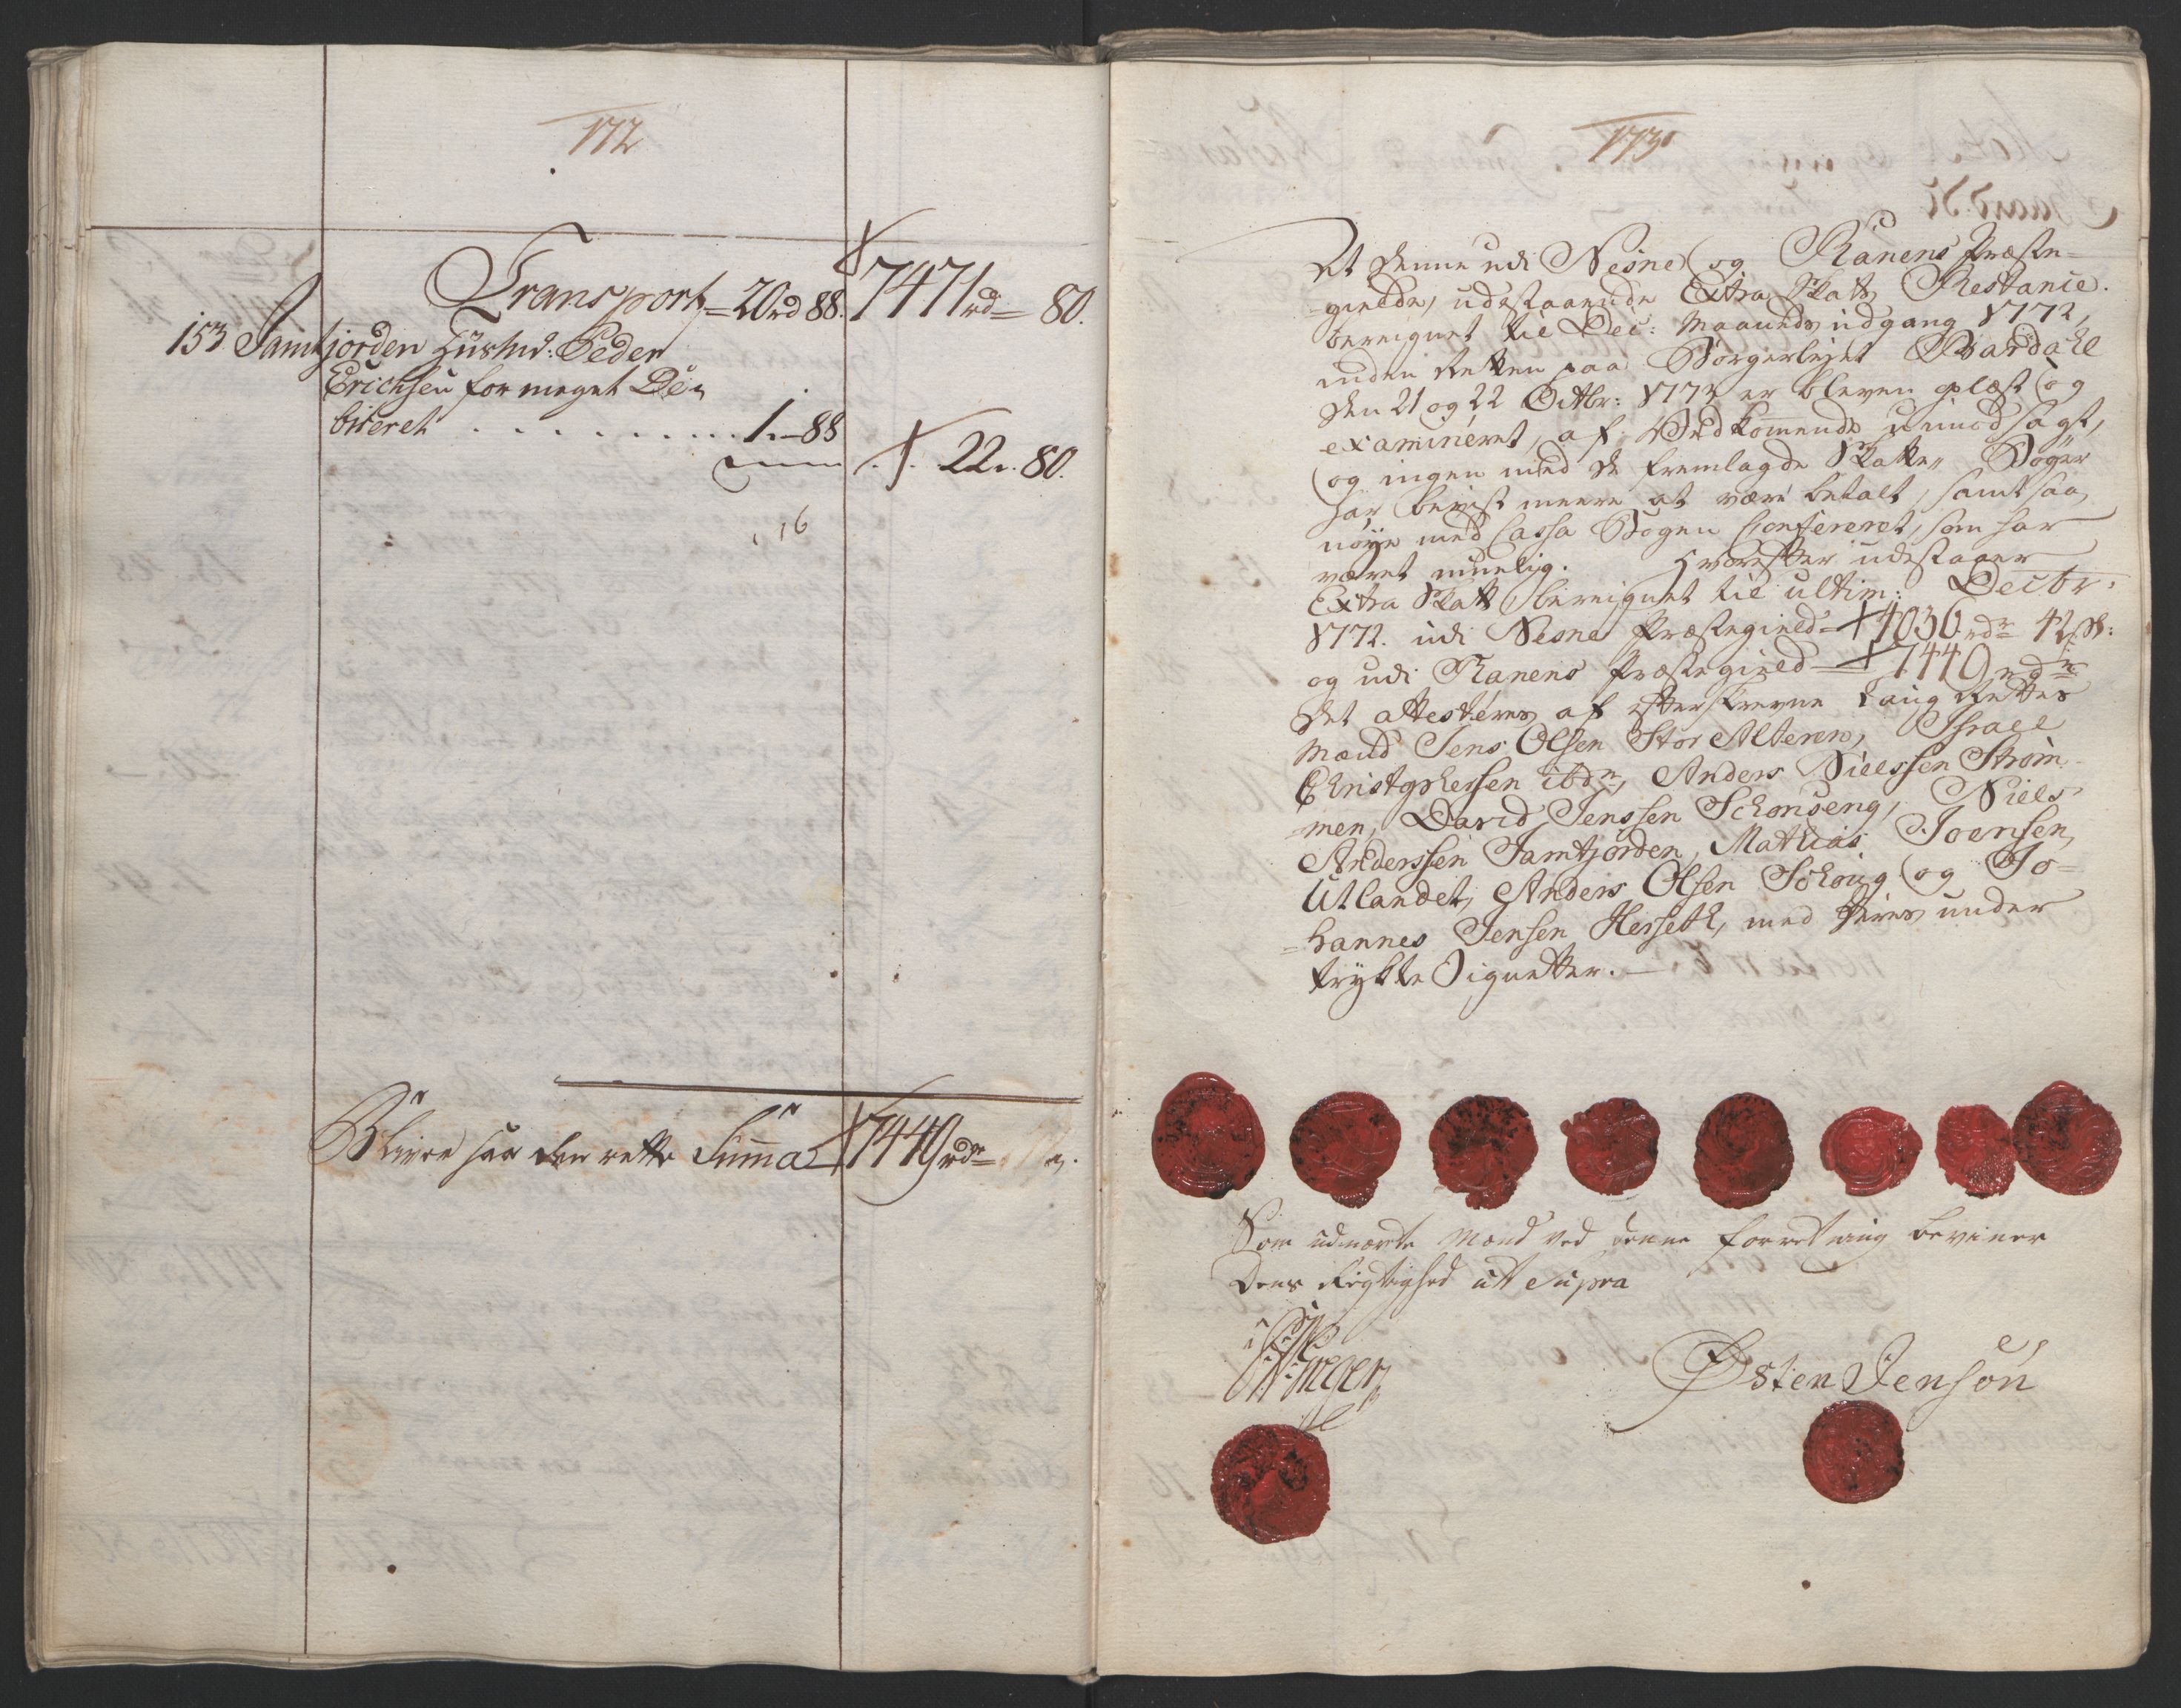 172
Transport = 20 rd 88. 7471 rd = 80.
153 Jamtjorden Huusmd: Peder
Erichsen for meget De-
biteret . . . . . . . . . . 1.-88
./. 22.. 80.
16
Bliver saa den rette Summa 7449 rdr
173
At denne udi Nesne og Ranens Præste-
gield, udestaaende Extra Skatts Restance.
bereignet til Dec: Maaneds udgang 1772,
inden Retten paa Borgerleyet Bardahl
den 21 og 22 Octbr: 1773 er bleven oplæst og
examineret, af Vedkommende uimodsagt,
og ingen med de fremlagde Skatte Bøger
har beviist meere at være betalt, samt saa
nøye med Cassa Bogen Confereret, som har
været muelig. Hvorefter udestaaer
Extra Skatt bereignet til ultim: Decbr:
1772. udi Nesne Præstegield = 4036 rdr 42 s:
og udi Ranens Præstegield = 7449 rdr
Det attesteres af efterskrevne Laug Rettes
Mænd Jens Olsen Stor Alteren, Israel
Christophersen ibdm, Anders Nielssen Strøm-
men, David Jenssen Schonseng, Niels
Anderssen Jamtjorden, Mathias Joensen
Utlandet, Anders Olsen Schoug og Jo-
hannes Jensen Herseth, med deres under
trykte Signetter. —
Som udnævnte Mænd ved denne forretning beviner
dens Rigtighed ut supra
Østen Jensøn